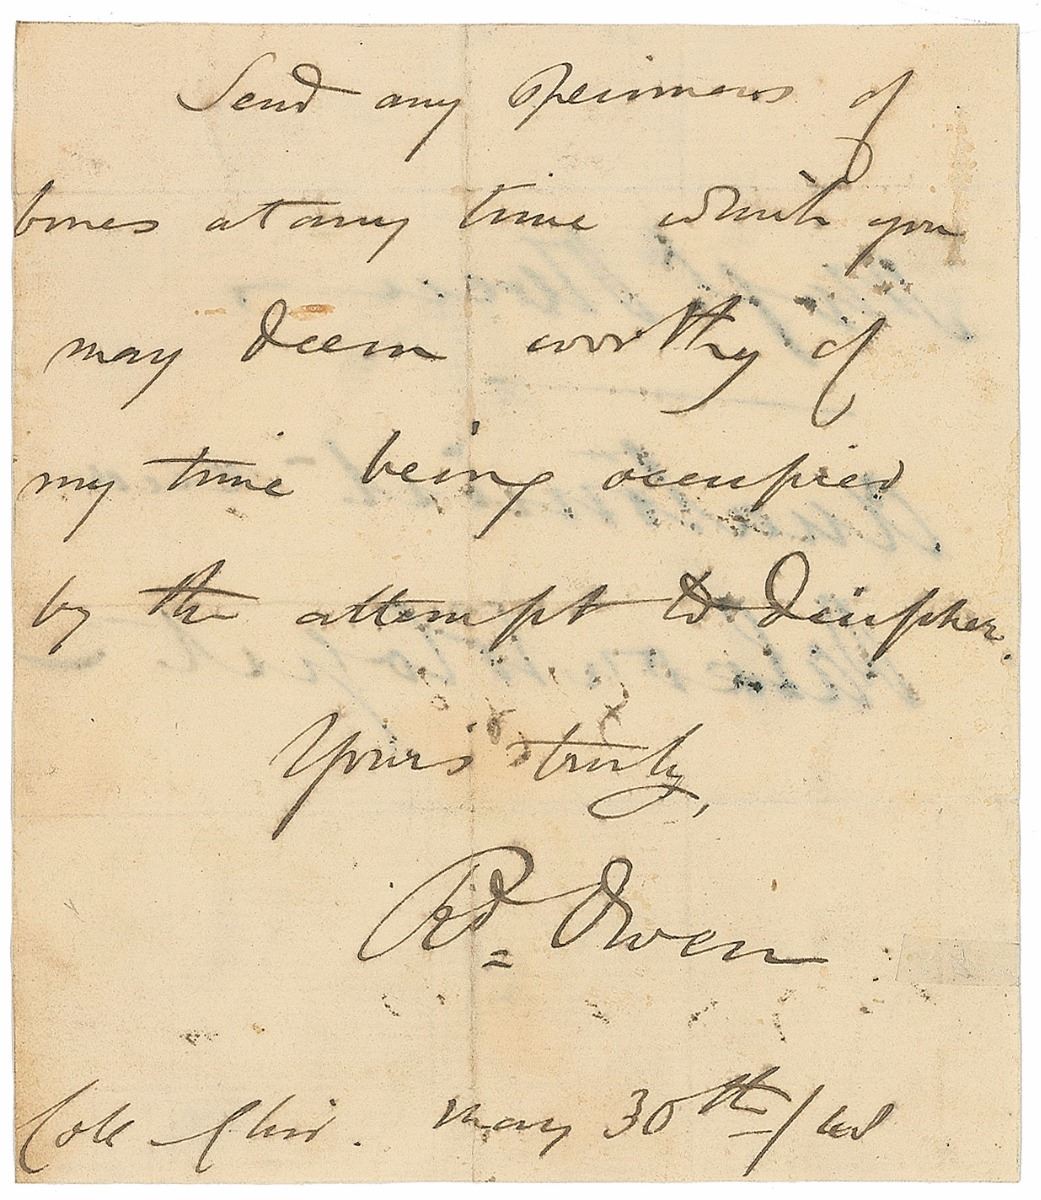 Send any specimens of
bones at any time which you
may deem worthy of
my time being occupied
by the attempt to decipher.
Yours truly,
Rd. Owen
Coll Chir. May 30th/